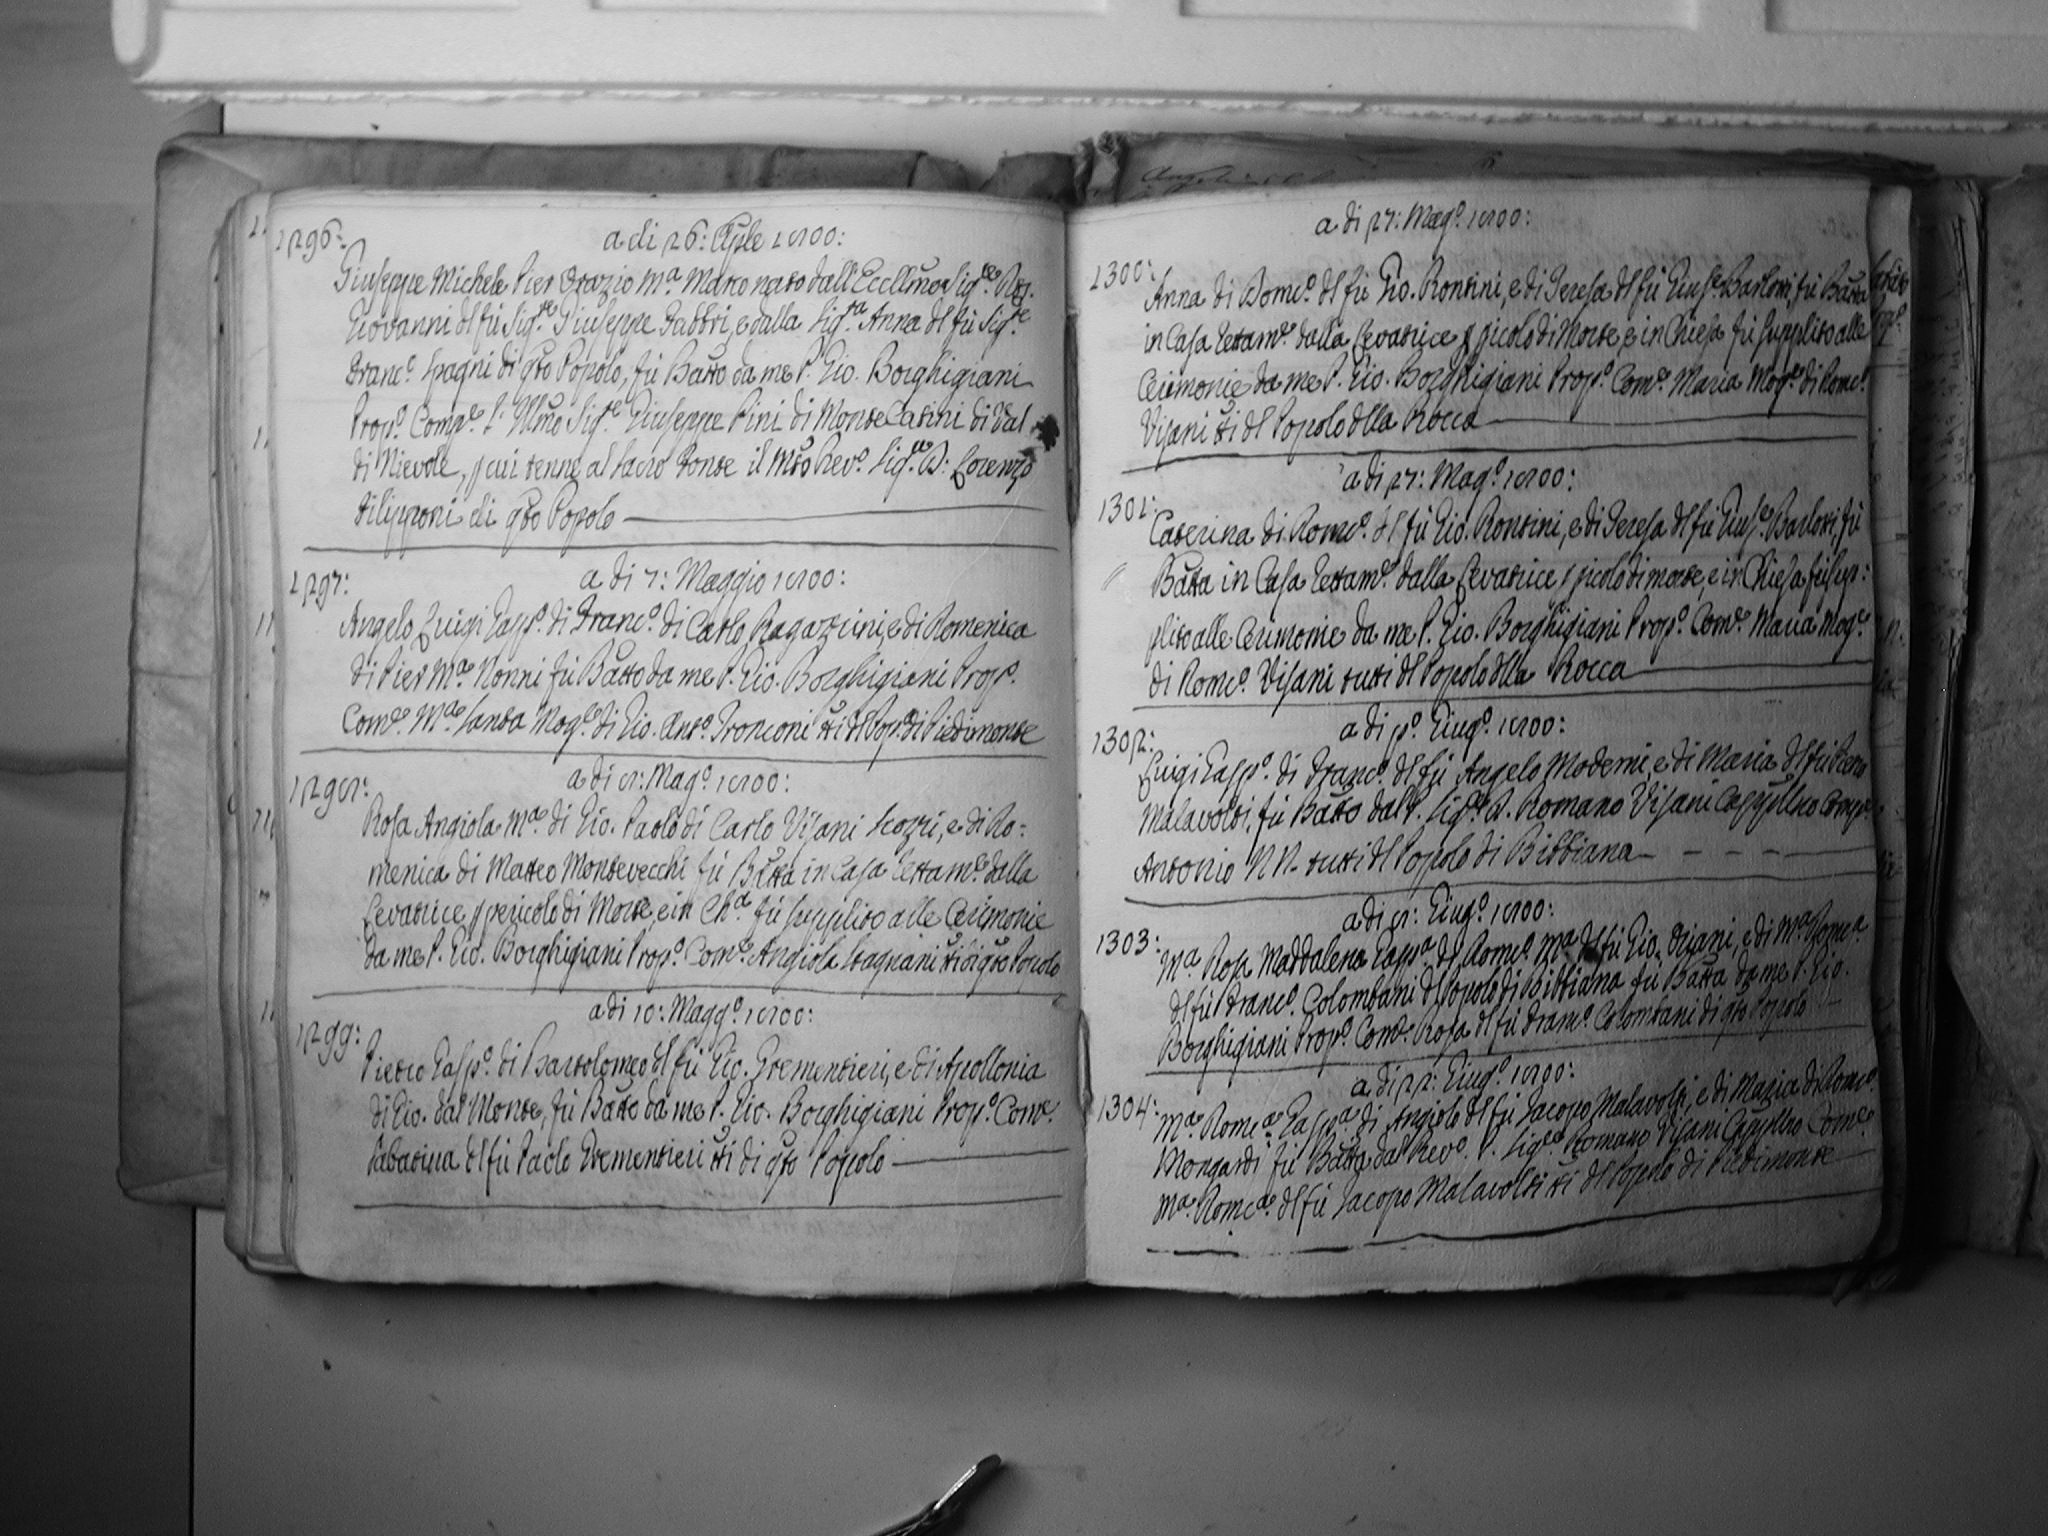 1296:
a di 26: Aple 1800:
Giuseppe Michele Pier Orazio Mª Marco nato dall'Eccllmo Sigʳᵉ
Giovanni dl fù Sigʳᵉ Giuseppe Fabbri, e dalla Sigʳª Anna dl fù Sigʳᵉ
Francº Spagni di qto Popolo, fù Batto da me P. Gio. Borghigiani
Propº Compʳᵉ l'Illmo Sigʳᵉ Giuseppe Pini di Monte Catini di Val
di Nievole, p cui tenne al Sacro Fonte il Mto Revº Sigʳᵉ D: Lorenzo
Filipponi di qto Popolo
1297:
a di 7: Maggio 1800:
Angelo Luigi Gaspº di Francº di Carlo Ragazzini, e di Domenica
di Pier Mª Nonni fù Batto da me P. Gio. Borghigiani Propº
Comʳᵉ Mª Santa Mogˡᵉ di Gio. Antº Tronconi tti dl Popº di Piedimonte
1298:
a di 8: Magº 1800:
Rosa Angiola Mª di Gio. Paolo di Carlo Visani Scozzi, e di Do=
menica di Matteo Montevecchi fù Batta in Casa Cettamᵉ dalla
Levatrice p pericolo di Morte, e in Chª fù supplito alle Cerimonie
da me P. Gio. Borghigiani Propº Comʳᵉ Angiola Stagnani tti di qto Popolo
1299:
a di 10: Maggº 1800:
Pietro Gaspº di Bartolomeo dl fù Gio. Trementieri, e di Apollonia
di Gio. dal Monte, fù Batto da me P. Gio. Borghigiani Propº Comʳᵉ
Sabatina dl fù Paolo Trementieri tti di qto Popolo
a di 27: Magº 1800:
1300:
Anna di Domcº dl fù Gio. Rontini, e di Teresa dl fù Giuspᵉ Barlotti, fù Batta
in Casa Cettamᵉ dalla Levatrice p picolo di Morte, e in Chiesa fù supplito alle
Cerimonie da me P. Gio. Borghigiani Propº Comʳᵉ Maria Mogˡᵉ di Domcº
Visani tti dl Popolo dlla Rocca
a di 27: Magº 1800:
1301:
Caterina di Domcº dl fù Gio. Rontini, e di Teresa dl fù Giuspᵉ Barlotti, fù
Batta in Casa Cettamᵉ dalla Levatrice p picolo di morte, e in Chiesa fù sup:
plito alle Cerimonie da me P. Gio. Borghigiani Propº Comʳᵉ Maria Mogˡᵉ
di Domcº Visani tutti dl Popolo dlla Rocca
a di pº Giugº 1800:
1302:
Luigi Gaspº di Francº dl fù Angelo Moderni, e di Maria dl fù Piero
Malavolti, fù Batto dal P. Sigʳᵉ D. Romano Visani Cappellno Compʳᵉ
Antonio NN tutti dl Popolo di Bibbiana
a di 8: Giugº 1800:
1303:
Mª Rosa Maddalena Gaspª di Domcº Mª dl fù Gio. Visani, e di Mª Domcª
dl fù Francº Colombani dl Popolo di Bibbiana fù Batta da me P. Gio.
Borghigiani Propº Comʳᵉ Rosa dl fù Francº Colombani di qto Popolo
a di 22: Giugº 1800:
1304:
Mª Domcª Gaspª di Angiolo dl fù Jacopo Malavolti, e di Maria di Domcº
Mongardi fù Batta dal Revº P. Sigʳᵉ Romano Visani Cappllno Comʳᵉ
Mª Domcª dl fù Jacopo Malavolti tti dl Popolo di Piedimonte